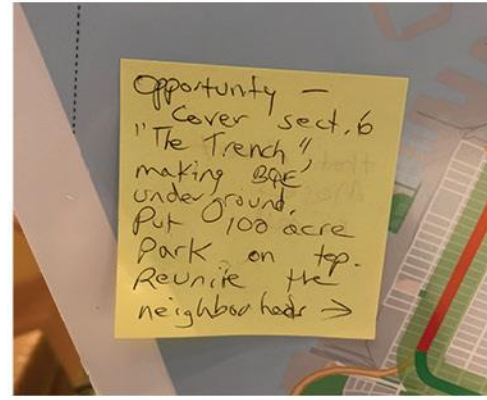 Opportunity —
Cover sect. 6
"The Trench",
making BQE
underground.
Put 100 acre
Park on top.
Reunite the
neighborhoods →